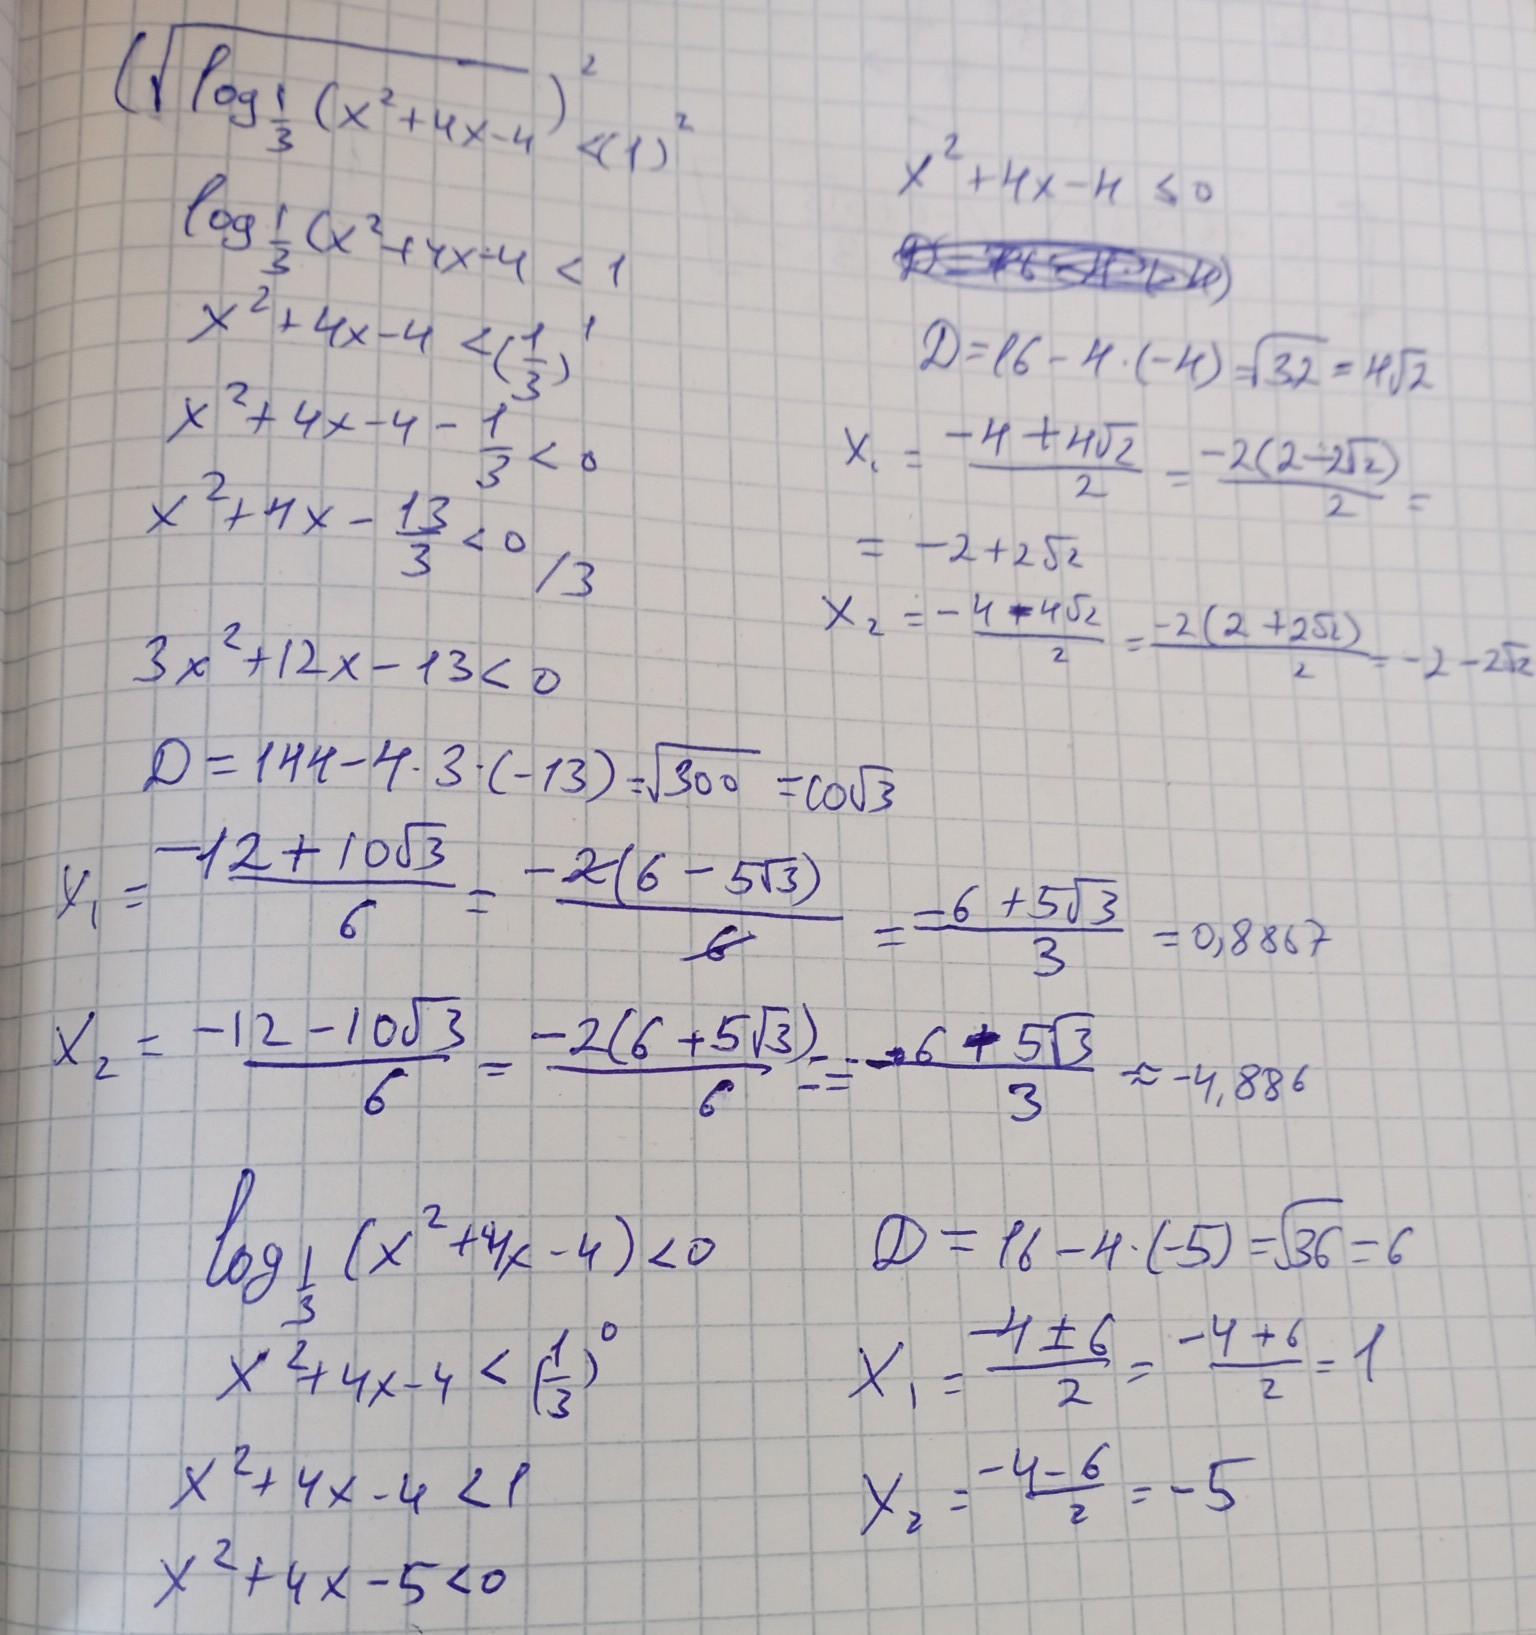 (√log_{1/3}(x²+4x-4)² <(1)²
log_{1/3}(x²+4x-4 < 1
x²+4x-4 <(1/3)¹
x²+4x-4-1/3 < 0
x²+4x-13/3 < 0 /3
3x²+12x-13 < 0
D=144-4·3·(-13)=√300 =10√3
x₁ = (-12+10√3)/6 = -2(6-5√3)/6 = (-6+5√3)/3 = 0,8867
x₂ = (-12-10√3)/6 = -2(6+5√3)/6 = = (-6-5√3)/3 ≈ -4,886
x²+4x-4 ≤ 0
D=16-4·(-4)=√32=4√2
x₁ = (-4+4√2)/2 = -2(2-2√2)/2 =
= -2+2√2
x₂ = (-4-4√2)/2 = -2(2+2√2)/2 = -2-2√2
log_{1/3}(x²+4x-4)<0
x²+4x-4 < (1/3)⁰
x²+4x-4 <1
x²+4x-5<0
D = 16-4·(-5)=√36=6
x₁ = (-4±6)/2 = (-4+6)/2 = 1
x₂ = (-4-6)/2 = -5